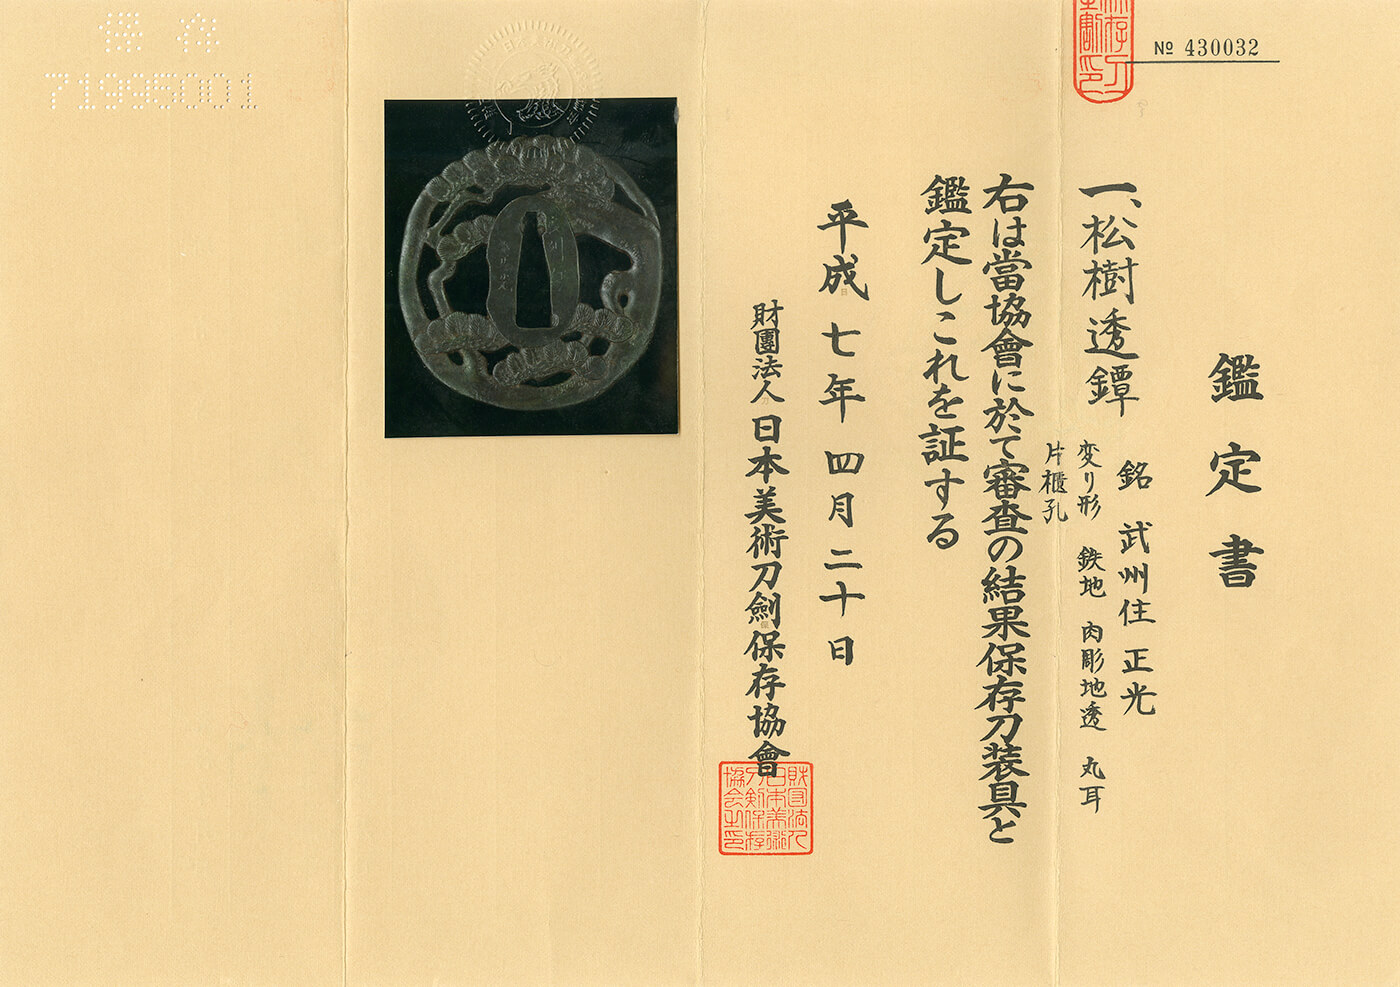 № 430032
鑑定書
一、松樹透鐔
銘 武州住正光
変り形 鉄地 肉彫地透 丸耳
片櫃孔
右は當協會に於て審査の結果保存刀装具と
鑑定しこれを証する
平成七年四月二十日
財團法人日本美術刀劍保存協會
財団法人
日本美術
刀剣保存
協会之印
保存
71995001